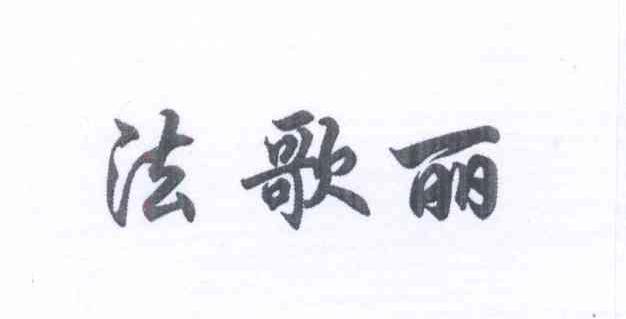 法歌丽